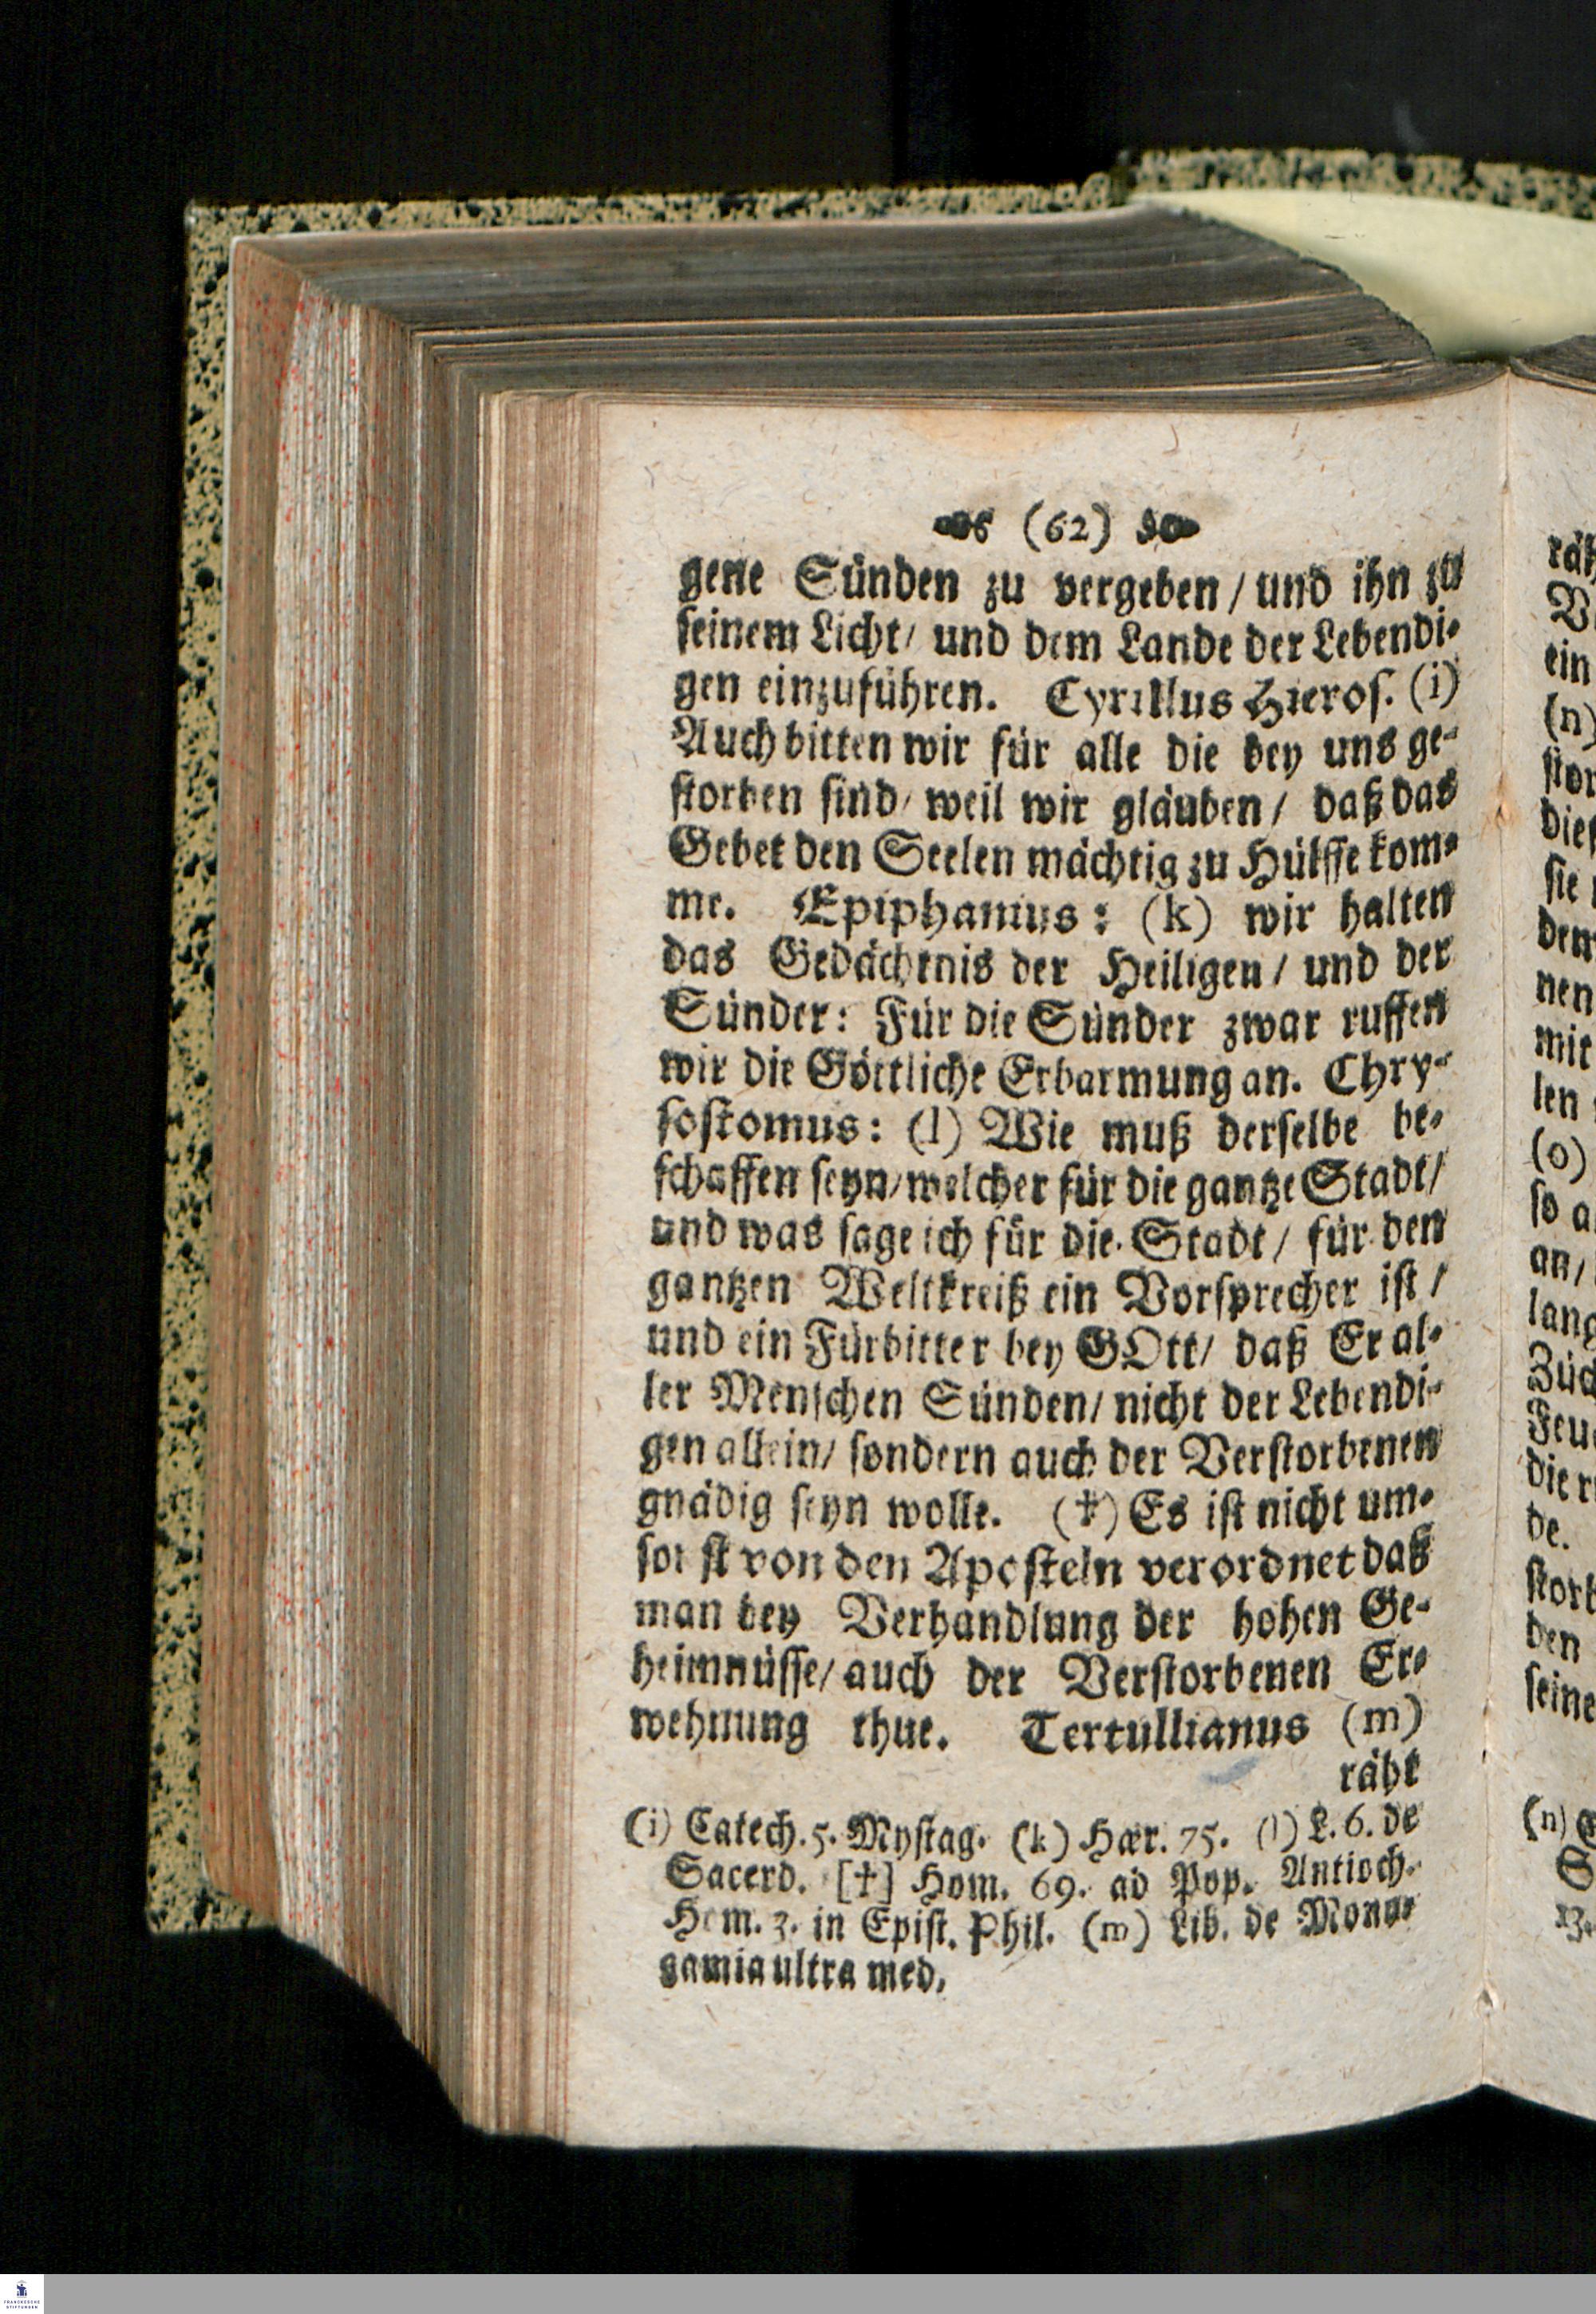 (62)
gene Sünden zu vergeben / und ihn zu
seinem Licht / und dem Lande der Lebendi-
gen einzuführen. Cyrillus Hieros. (i)
Auch bitten wir für alle die bey uns ge-
storben sind / weil wir gläuben / daß das
Gebet den Seelen mächtig zu Hülffe kom-
me. Epiphanius: (k) wir halten
das Gedächtnis der Heiligen / und der
Sünder: Für die Sünder zwar ruffen
wir die Göttliche Erbarmung an. Chry-
sostomus: (l) Wie muß derselbe be-
schaffen seyn / welcher für die gantze Stadt /
und was sage ich für die Stadt / für den
gantzen Weltkreiß ein Vorsprecher ist /
und ein Fürbitter bey GOtt / daß Er al-
ler Menschen Sünden / nicht der Lebendi-
gen allein / sondern auch der Verstorbenen
gnädig seyn wolle. (†) Es ist nicht um-
sonst von den Aposteln verordnet daß
man bey Verhandlung der hohen Ge-
heimnüsse / auch der Verstorbenen Er-
wehnung thue. Tertullianus (m)
räht
(i) Catech. 5. Mystag. (k) Hær. 75. (l) L. 6. de
Sacerd. [†] Hom. 69. ad Pop. Antioch.
Hom. 3. in Epist. Phil. (m) Lib. de Mono-
gamia ultra med.
räh
ein
(n)
stor
dies
sie
dem
nen
mit
len
(o)
so a
an /
lang
Züc
Feu
die r
de.
storb
den
seine
(n)
FRANCKESCHE
STIFTUNGEN